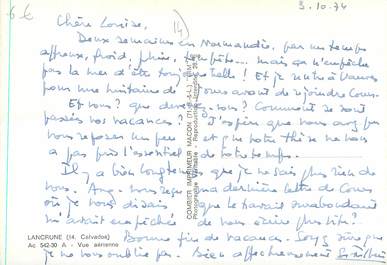 6€
14
3.10.74
Chère Louise,
Deux semaines en Normandie, par un temps
affreux, froid, pluie, tempête... mais ça n'empêche
pas la mer d'être toujours belle ! Et je rentre à Vanves
pour une huitaine de jours avant de rejoindre Caen.
Et vous ? que devenez-vous ? Comment se sont
passées vos vacances ? J'espère que vous avez pu
vous reposer un peu et que votre thèse ne vous
a pas pris l'essentiel de votre temps.
Il y a bien longtemps que je ne sais plus rien de
vous. Avez-vous reçu ma dernière lettre de Caen
où je vous disais que le travail surabondant
m'avait empêchée de vous écrire plus tôt ?
Bonne fin de vacances. Soyez sûre que
je ne vous oublie pas. Bien affectueusement
LANGRUNE (14. Calvados)
Ac 542-30 A - Vue aérienne
COMBIER IMPRIMEUR MACON (71-S.-&-L.)